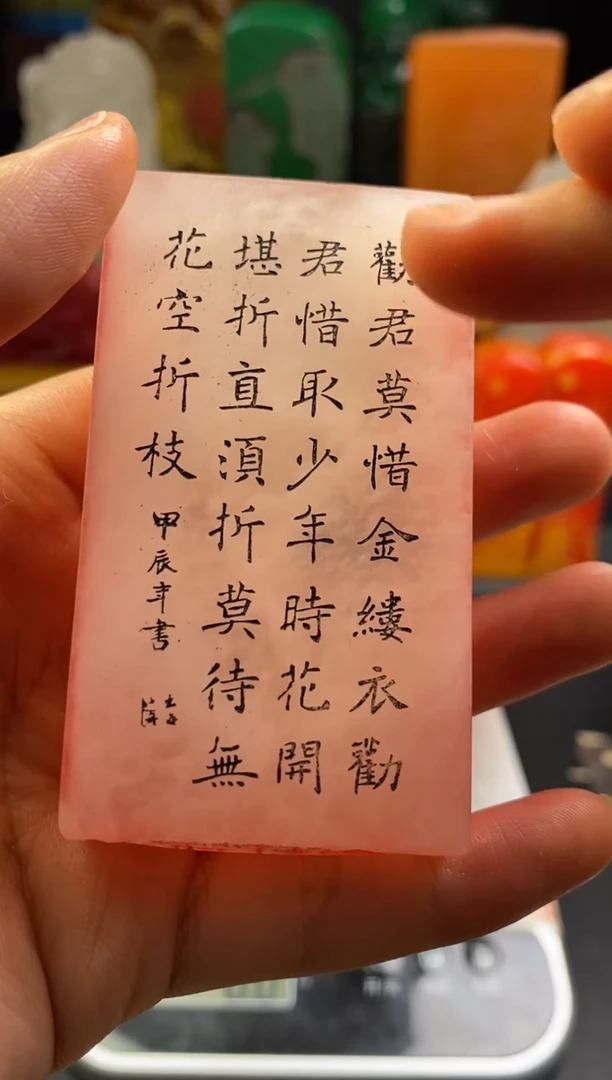 勸君莫惜金縷衣勸
君惜取少年時花開
堪折直須折莫待無
花空折枝甲辰年書